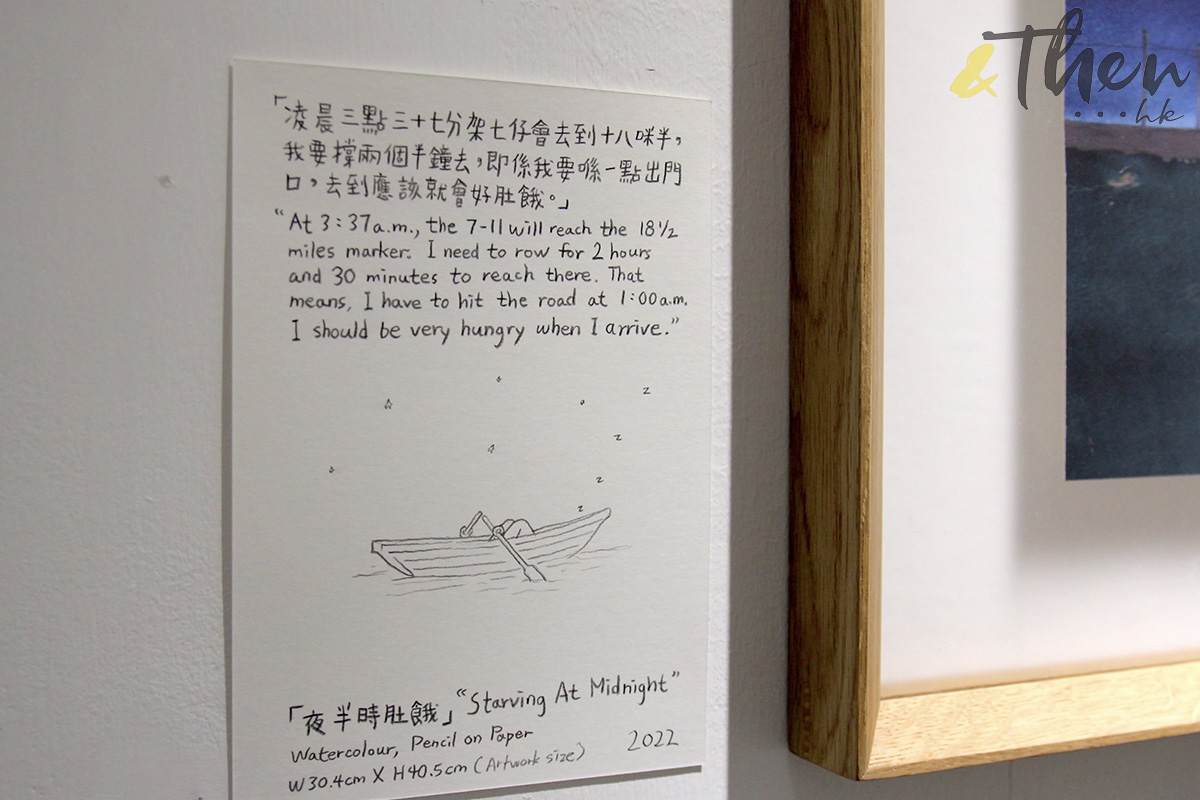 &Then
...hk
「凌晨三點三十七分架七仔會去到十八咪半，
我要撐兩個半鐘去，即係我要喺一點出門
口，去到應該就會好肚餓。」
“At 3:37a.m., the 7-11 will reach the 18 1/2
miles marker. I need to row for 2 hours
and 30 minutes to reach there. That
means, I have to hit the road at 1:00a.m.
I should be very hungry when I arrive.”
z
z
z
z
「夜半時肚餓」 “Starving At Midnight”
Watercolour, Pencil on Paper 2022
W30.4cm X H40.5cm (Artwork size)